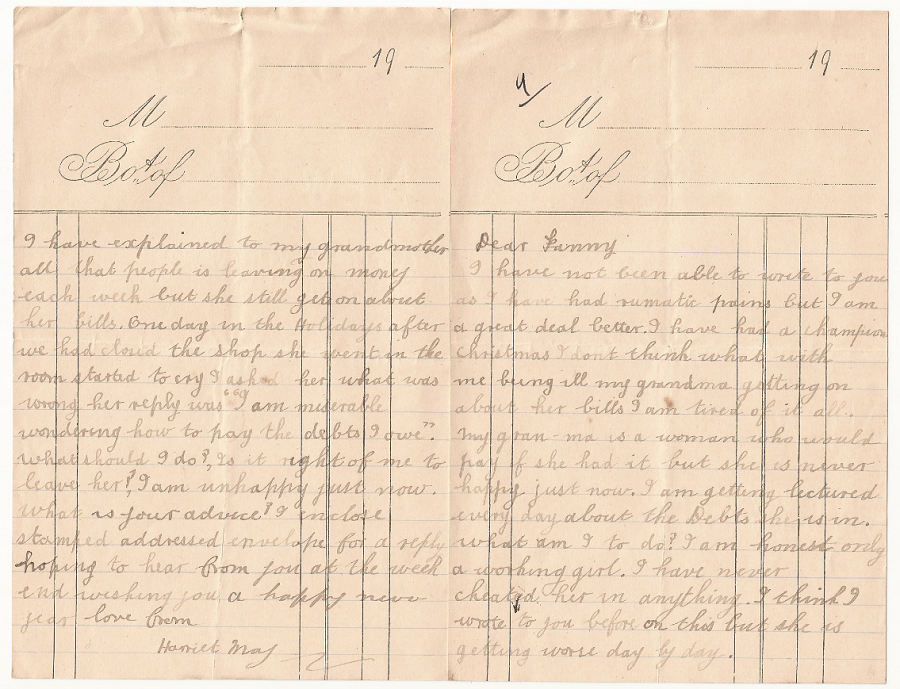 19
M
Bot. of
Dear Fanny
I have not been able to wrote to you
as I have had rumatic pains but I am
a great deal better. I have had a champion
christmas I dont think what with
me being ill my grandma getting on
about her bills I am tired of it all.
my gran-ma is a woman who would
pay if she had it but she is never
happy just now. I am getting lectured
every day about the Debts she is in.
what am I to do? I am honest only
a working girl. I have never
cheated her in anything. I think I
wrote to you before on this but she is
getting worse day by day.
19
M
Bot. of
I have explained to my grandmother
all that people is leaving on money
each week but she still get on about
her bills. One day in the Holidays after
we had closd the shop she went in the
room started to cry I asked her what was
wrong her reply was "I am miserable
wondering how to pay the debts I owe".
what should I do?, Is it right of me to
leave her?, I am unhappy just now.
what is your advice? I enclose
stamped addressed envelope for a reply
hoping to hear from you at the week
end wishing you a happy new
year love from
Harriet May